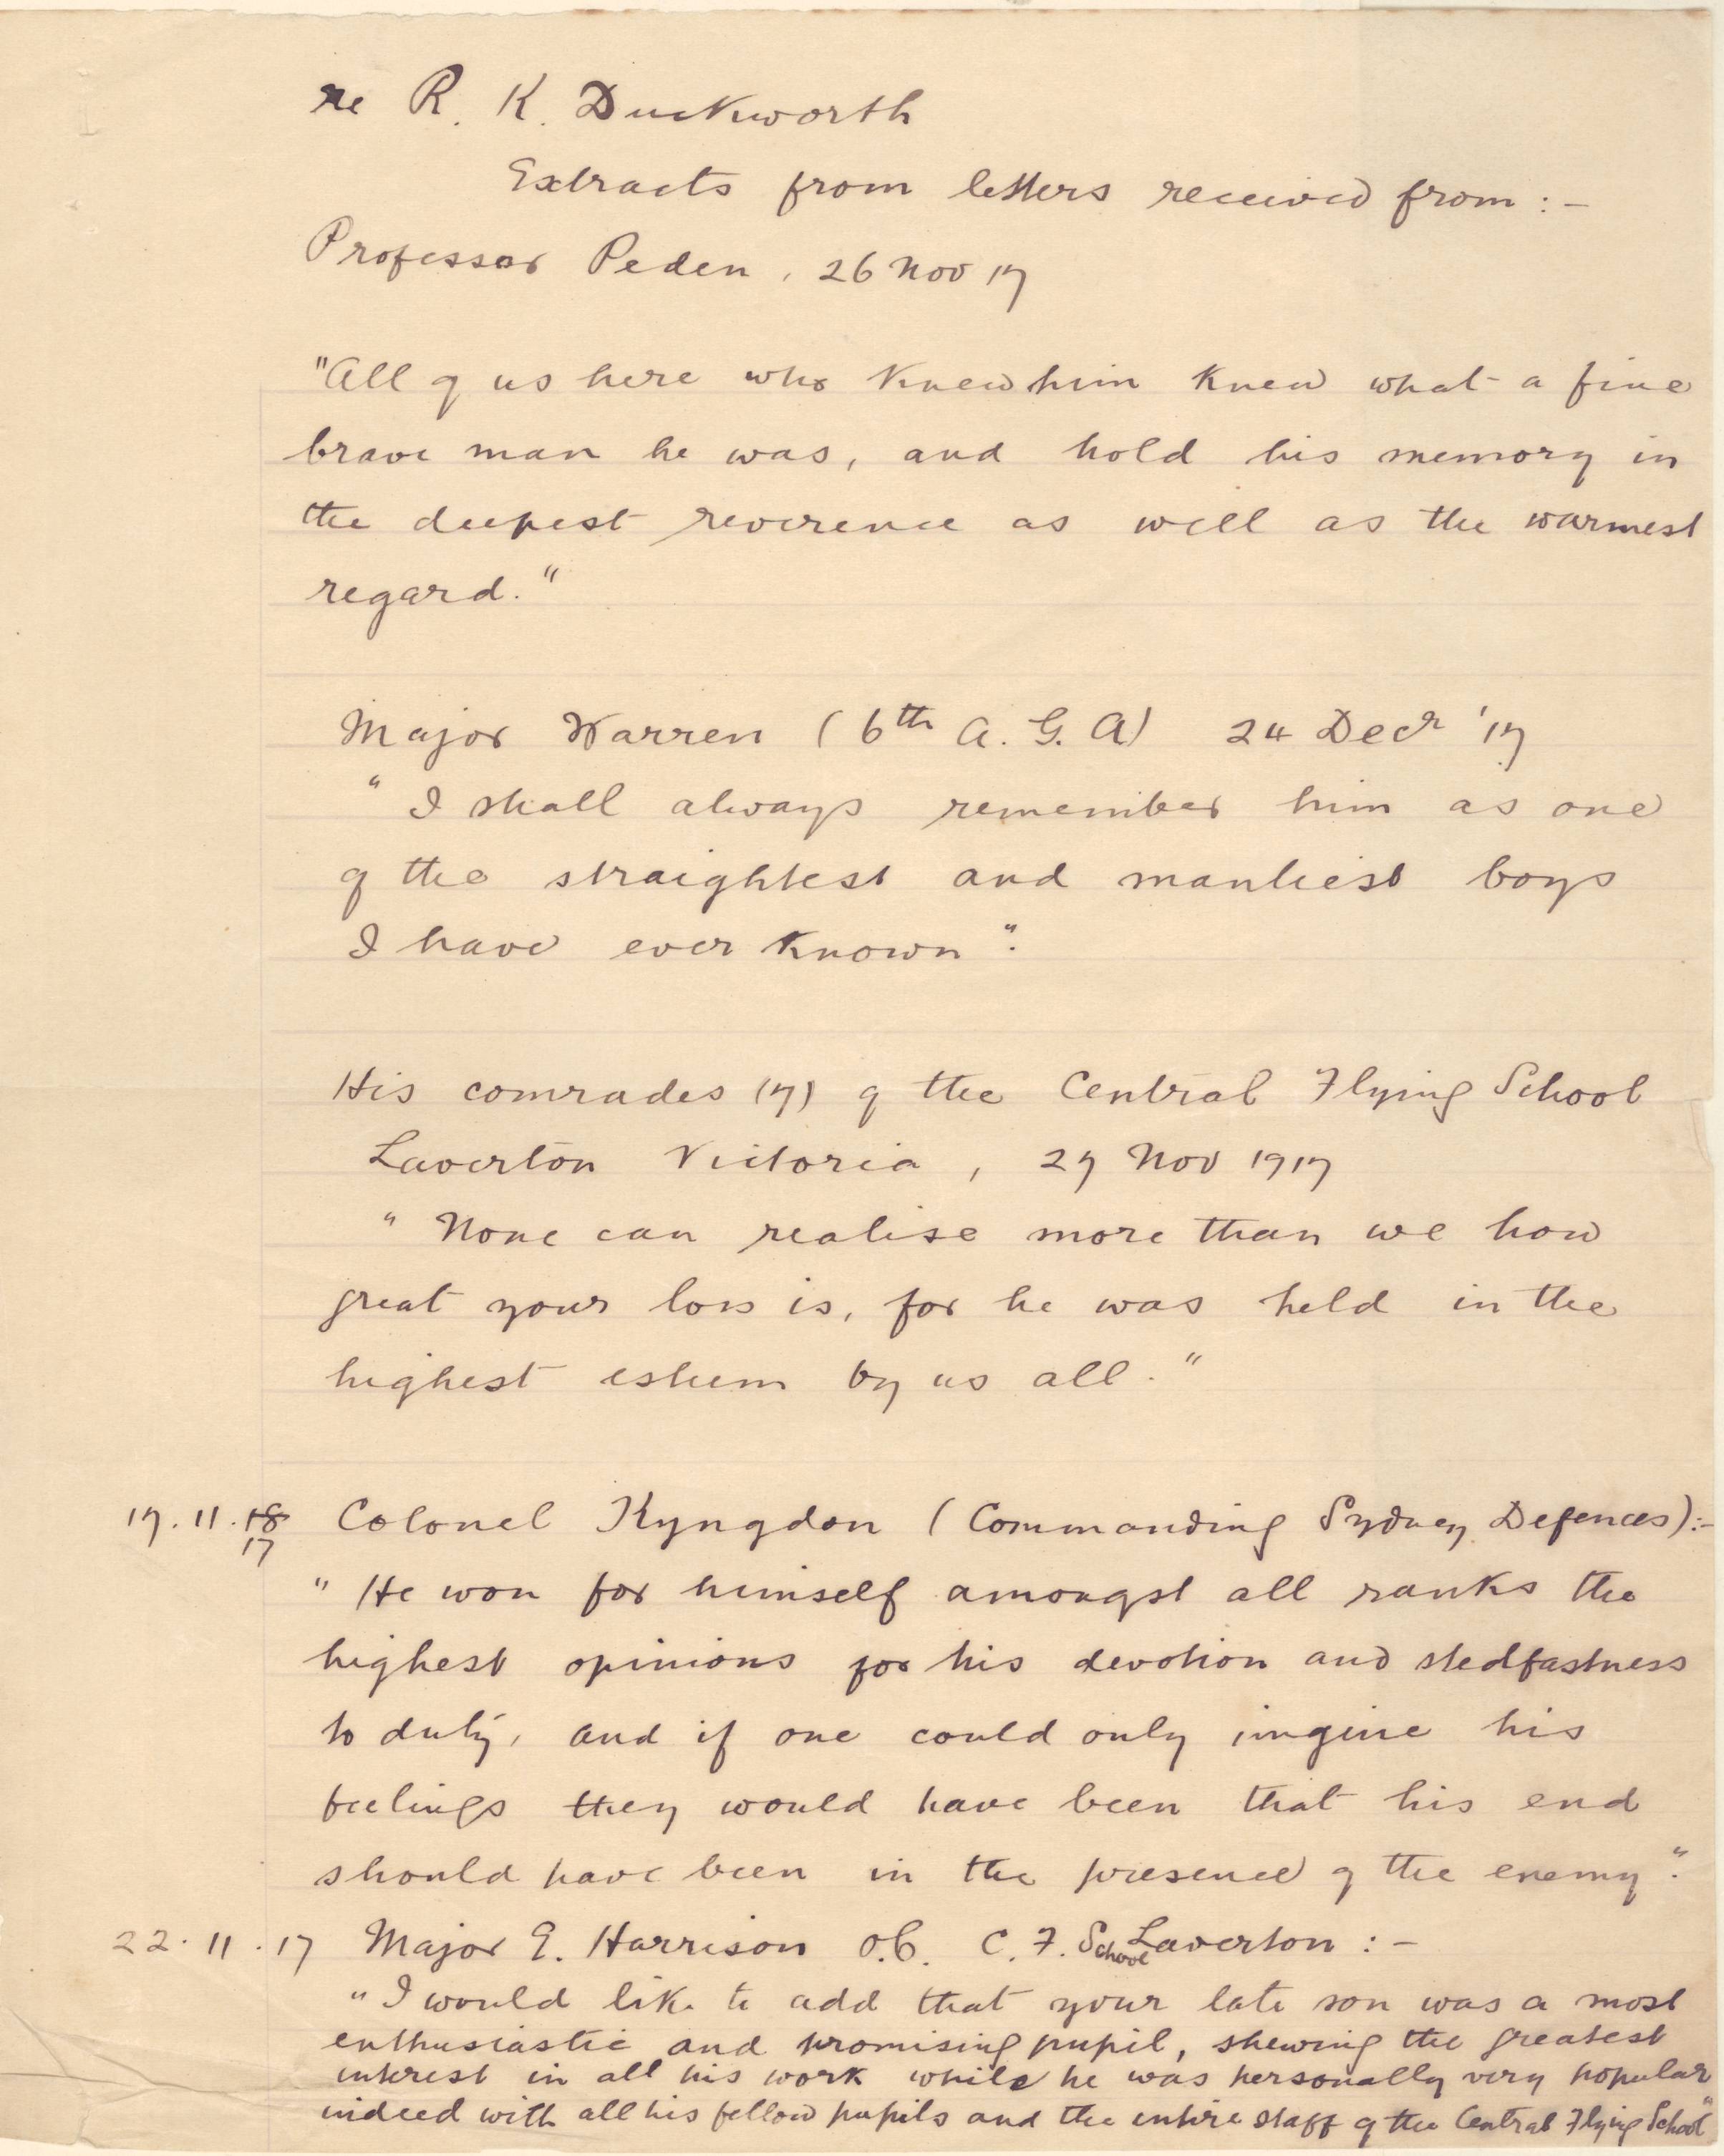 re R. K. Duckworth
Extracts from letters received from :-
Professor Peden, 26 Nov 17
"All of us here who knew him knew what a fine
brave man he was, and hold his memory in
the deepest reverence as well as the warmest
regard."
Major Warren (6th A. G. A) 24 Decr '17
"I shall always remember him as one
of the straightest and manliest boys
I have ever known".
His comrades (7) of the Central Flying School
Laverton Victoria, 27 Nov 1917
"None can realise more than we how
great your loss is, for he was held in the
highest esteem by us all."
17.11.18 Colonel Kyngdon (Commanding Sydney Defences):-
17
"He won for himself amongst all ranks the
highest opinions for his devotion and stedfastness
to duty, and if one could only imgine his
feelings they would have been that his end
should have been in the presence of the enemy".
22.11.17 Major E. Harrison O.C. C. F. School Laverton :-
"I would like to add that your late son was a most
enthusiastic and promising pupil, shewing the greatest
interest in all his work while he was personally very popular
indeed with all his fellow pupils and the entire staff of the Central Flying School"